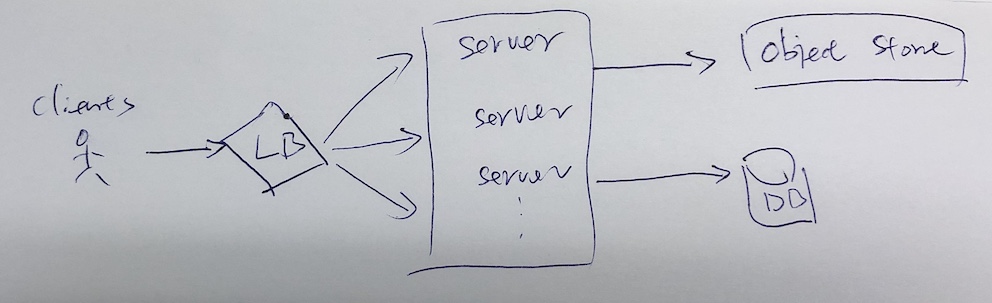 clients
LB
server
server
server
Object Store
DB